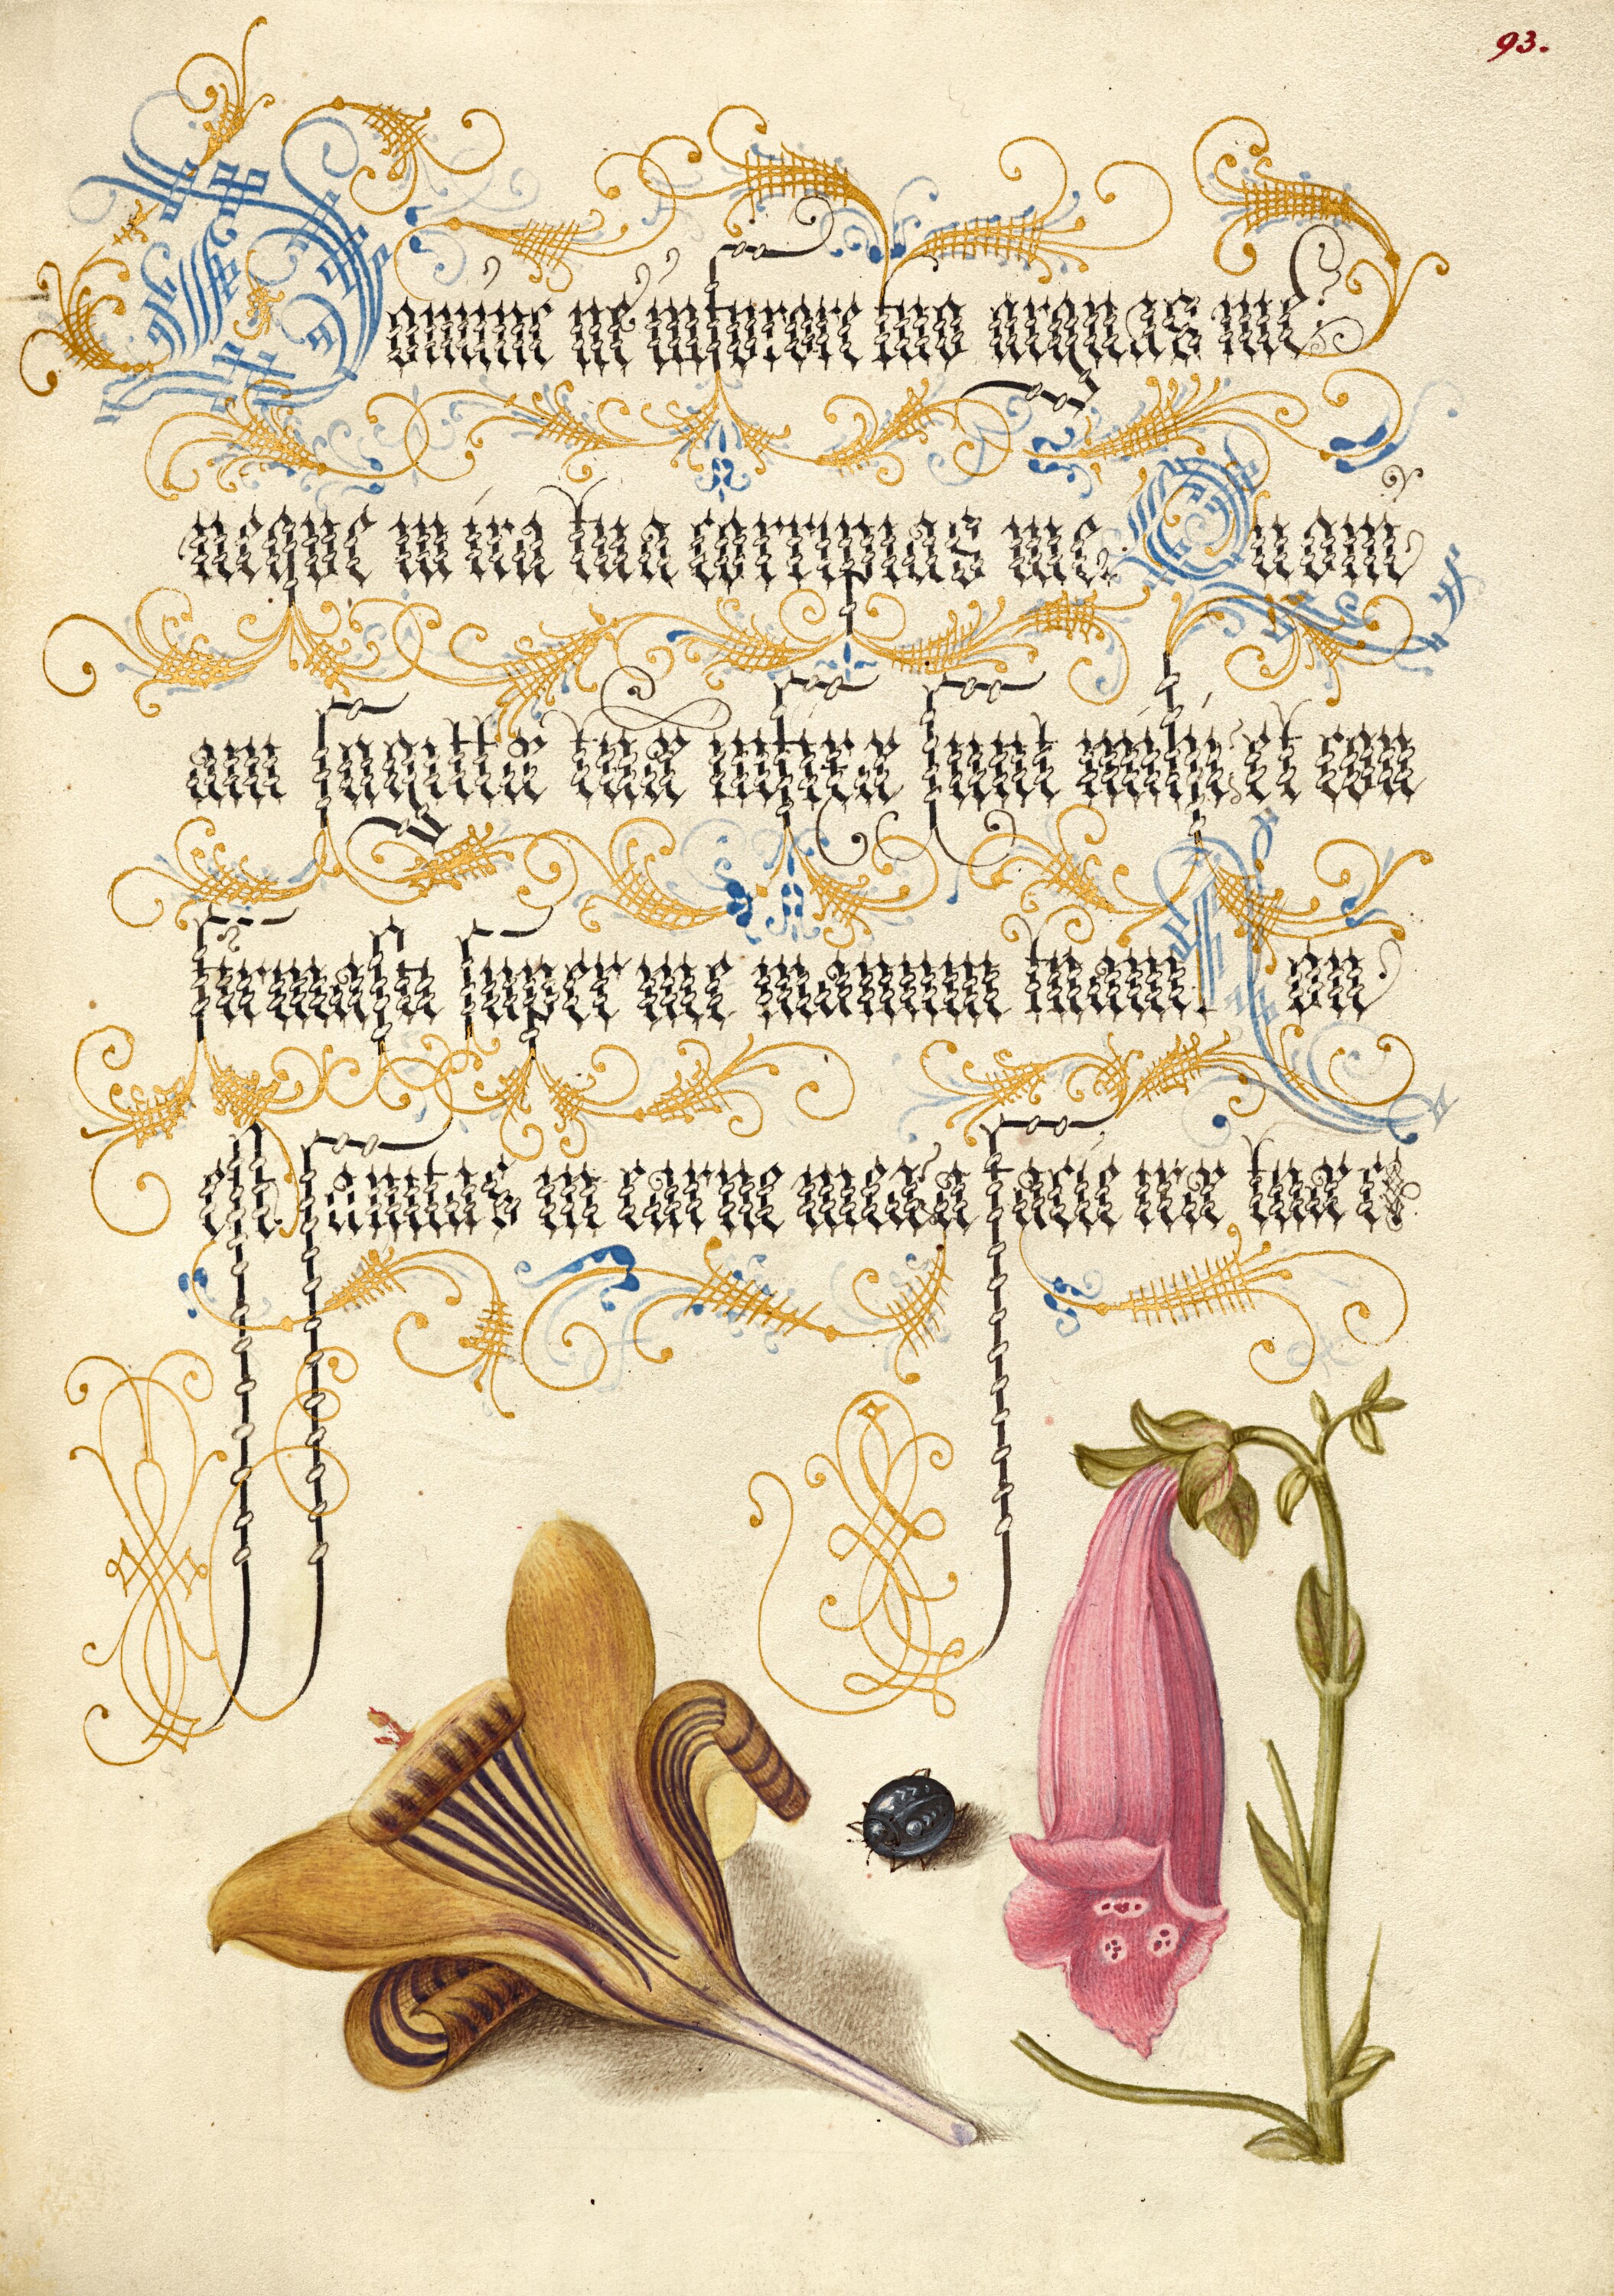 93.
Domine ne in furore tuo arguas me,
neque in ira tua corripias me. Quoni
am sagittæ tuæ infixæ sunt mihi, et con
firmasti super me manum tuam. Non
est sanitas in carne mea, a facie iræ tuæ